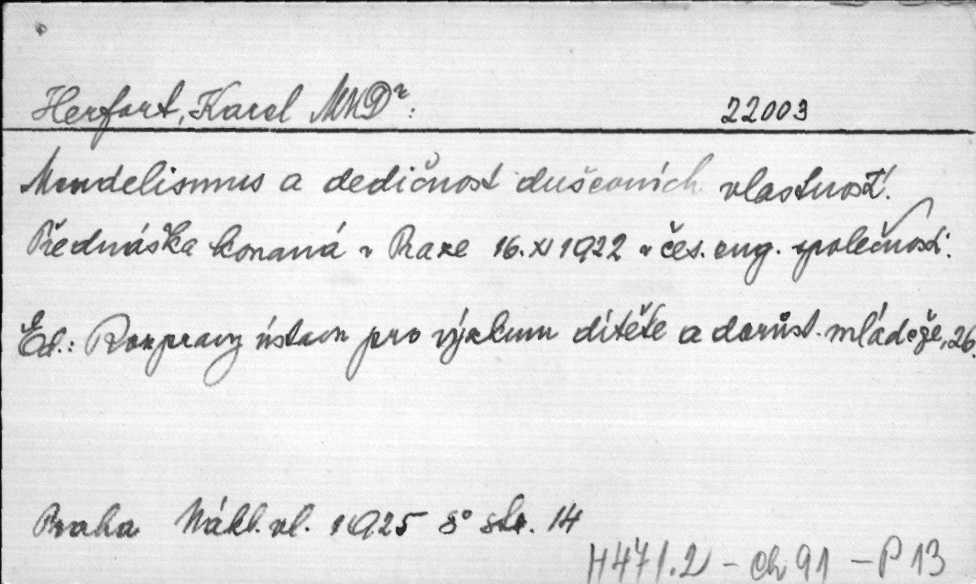 Herfort, Karel MUDr: 22003
Mendelismus a dedičnost duševních vlastností.
Přednáška konaná v Praze 16.XI 1922 v čes. eug. společnosti.
Ed.: Rozpravy ústavu pro výzkum dítěte a dorůst. mládeže, 26
Praha Nákl. vl. 1925 8° str. 14
H471.2 - ch 91 - P 13